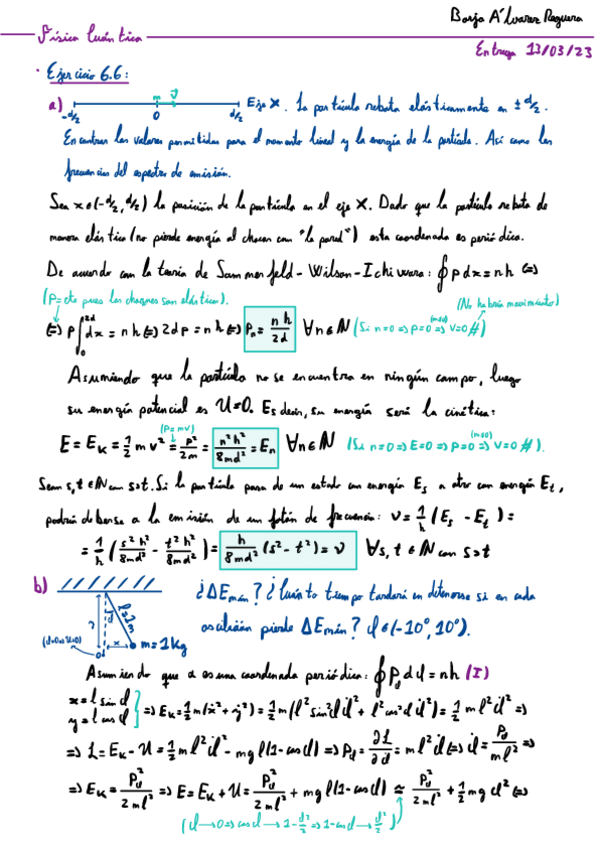 Borja Álvarez Reguera
Física Cuántica
Entrega 13/03/23
· Ejercicio 6.6:
a) -d/2 0 m v⃗ d/2 Eje X. La partícula rebota elásticamente en ± d/2.
Encontrar los valores permitidos para el momento lineal y la energía de la partícula. Así como las
frecuencias del espectro de emisión.
Sea x∈(-d/2, d/2) la posición de la partícula en el eje X. Dado que la partícula rebota de
manera elástica (no pierde energía al chocar con "la pared") esta coordenada es periódica.
De acuerdo con la teoría de Sommerfeld-Wilson-Ichiwara: ∮ p dx = nh (=)
(P=cte pues los choques son elásticos).
(No habría movimiento)
(=) p ∫₀^2d dx = nh (=) 2dp = nh (=) Pn = nh/2d ∀n∈ℕ (Si n=0 => p=0 (m≠0) => v=0 #)
Asumiendo que la partícula no se encuentra en ningún campo, luego
su energía potencial es U=0. Es decir, su energía será la cinética:
E = E_K = 1/2 m v² = (p=mv) p²/2m = n²h²/8md² = En ∀n∈ℕ (Si n=0 => E=0 => p=0 (m≠0) => v=0 #).
Sean s,t∈ℕ con s>t. Si la partícula pasa de un estado con energía Es a otro con energía Et,
podría deberse a la emisión de un fotón de frecuencia: ν = 1/h (Es - Et) =
= 1/h (s²h²/8md² - t²h²/8md²) = h/8md² (s² - t²) = ν ∀s, t ∈ ℕ con s>t
b) l=1m m=1Kg x ¿ΔEmín? ¿Cuánto tiempo tardará en detenerse si en cada
oscilación pierde ΔEmín? α∈(-10°, 10°).
(α=0 => U=0)
Asumiendo que α es una coordenada periódica: ∮ Pα dα = nh (I)
x = l sin α
y = l cos α } => E_K = 1/2 m (ẋ² + ẏ²) = 1/2 m (l² sin²α α̇² + l² cos²α α̇²) = 1/2 m l² α̇² =>
=> L = E_K - U = 1/2 m l² α̇² - mgl(1-cosα) => Pα = ∂L/∂α̇ = m l² α̇ (=) α̇ = Pα/ml² =>
=> E_K = Pα²/2ml² => E = E_K + U = Pα²/2ml² + mgl(1-cosα) ≃ Pα²/2ml² + 1/2 mg α² (=)
(α→0 => cosα → 1-α²/2 => 1-cosα → α²/2)